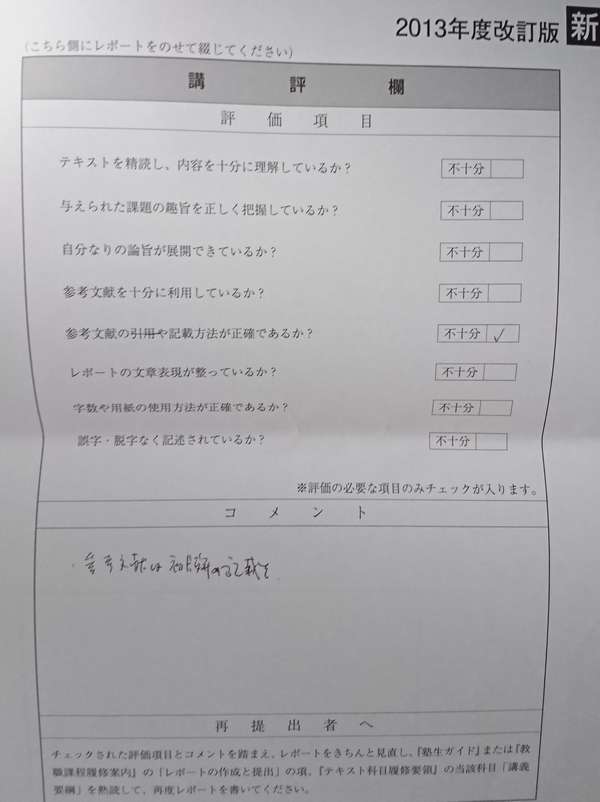 2013年度改訂版 新
(こちら側にレポートをのせて綴じてください)
講評欄
評価項目
テキストを精読し、内容を十分に理解しているか? 不十分
与えられた課題の趣旨を正しく把握しているか? 不十分
自分なりの論旨が展開できているか? 不十分
参考文献を十分に利用しているか? 不十分
参考文献の引用や記載方法が正確であるか? 不十分 ✓
レポートの文章表現が整っているか? 不十分
字数や用紙の使用方法が正確であるか? 不十分
誤字・脱字なく記述されているか? 不十分
※評価の必要な項目のみチェックが入ります。
コメント
・参考文献は初版の記載を
再提出者へ
チェックされた評価項目とコメントを踏まえ、レポートをきちんと見直し、『塾生ガイド』または『教
職課程履修案内』の「レポートの作成と提出」の項、『テキスト科目履修要領』の当該科目「講義
要綱」を熟読して、再度レポートを書いてください。